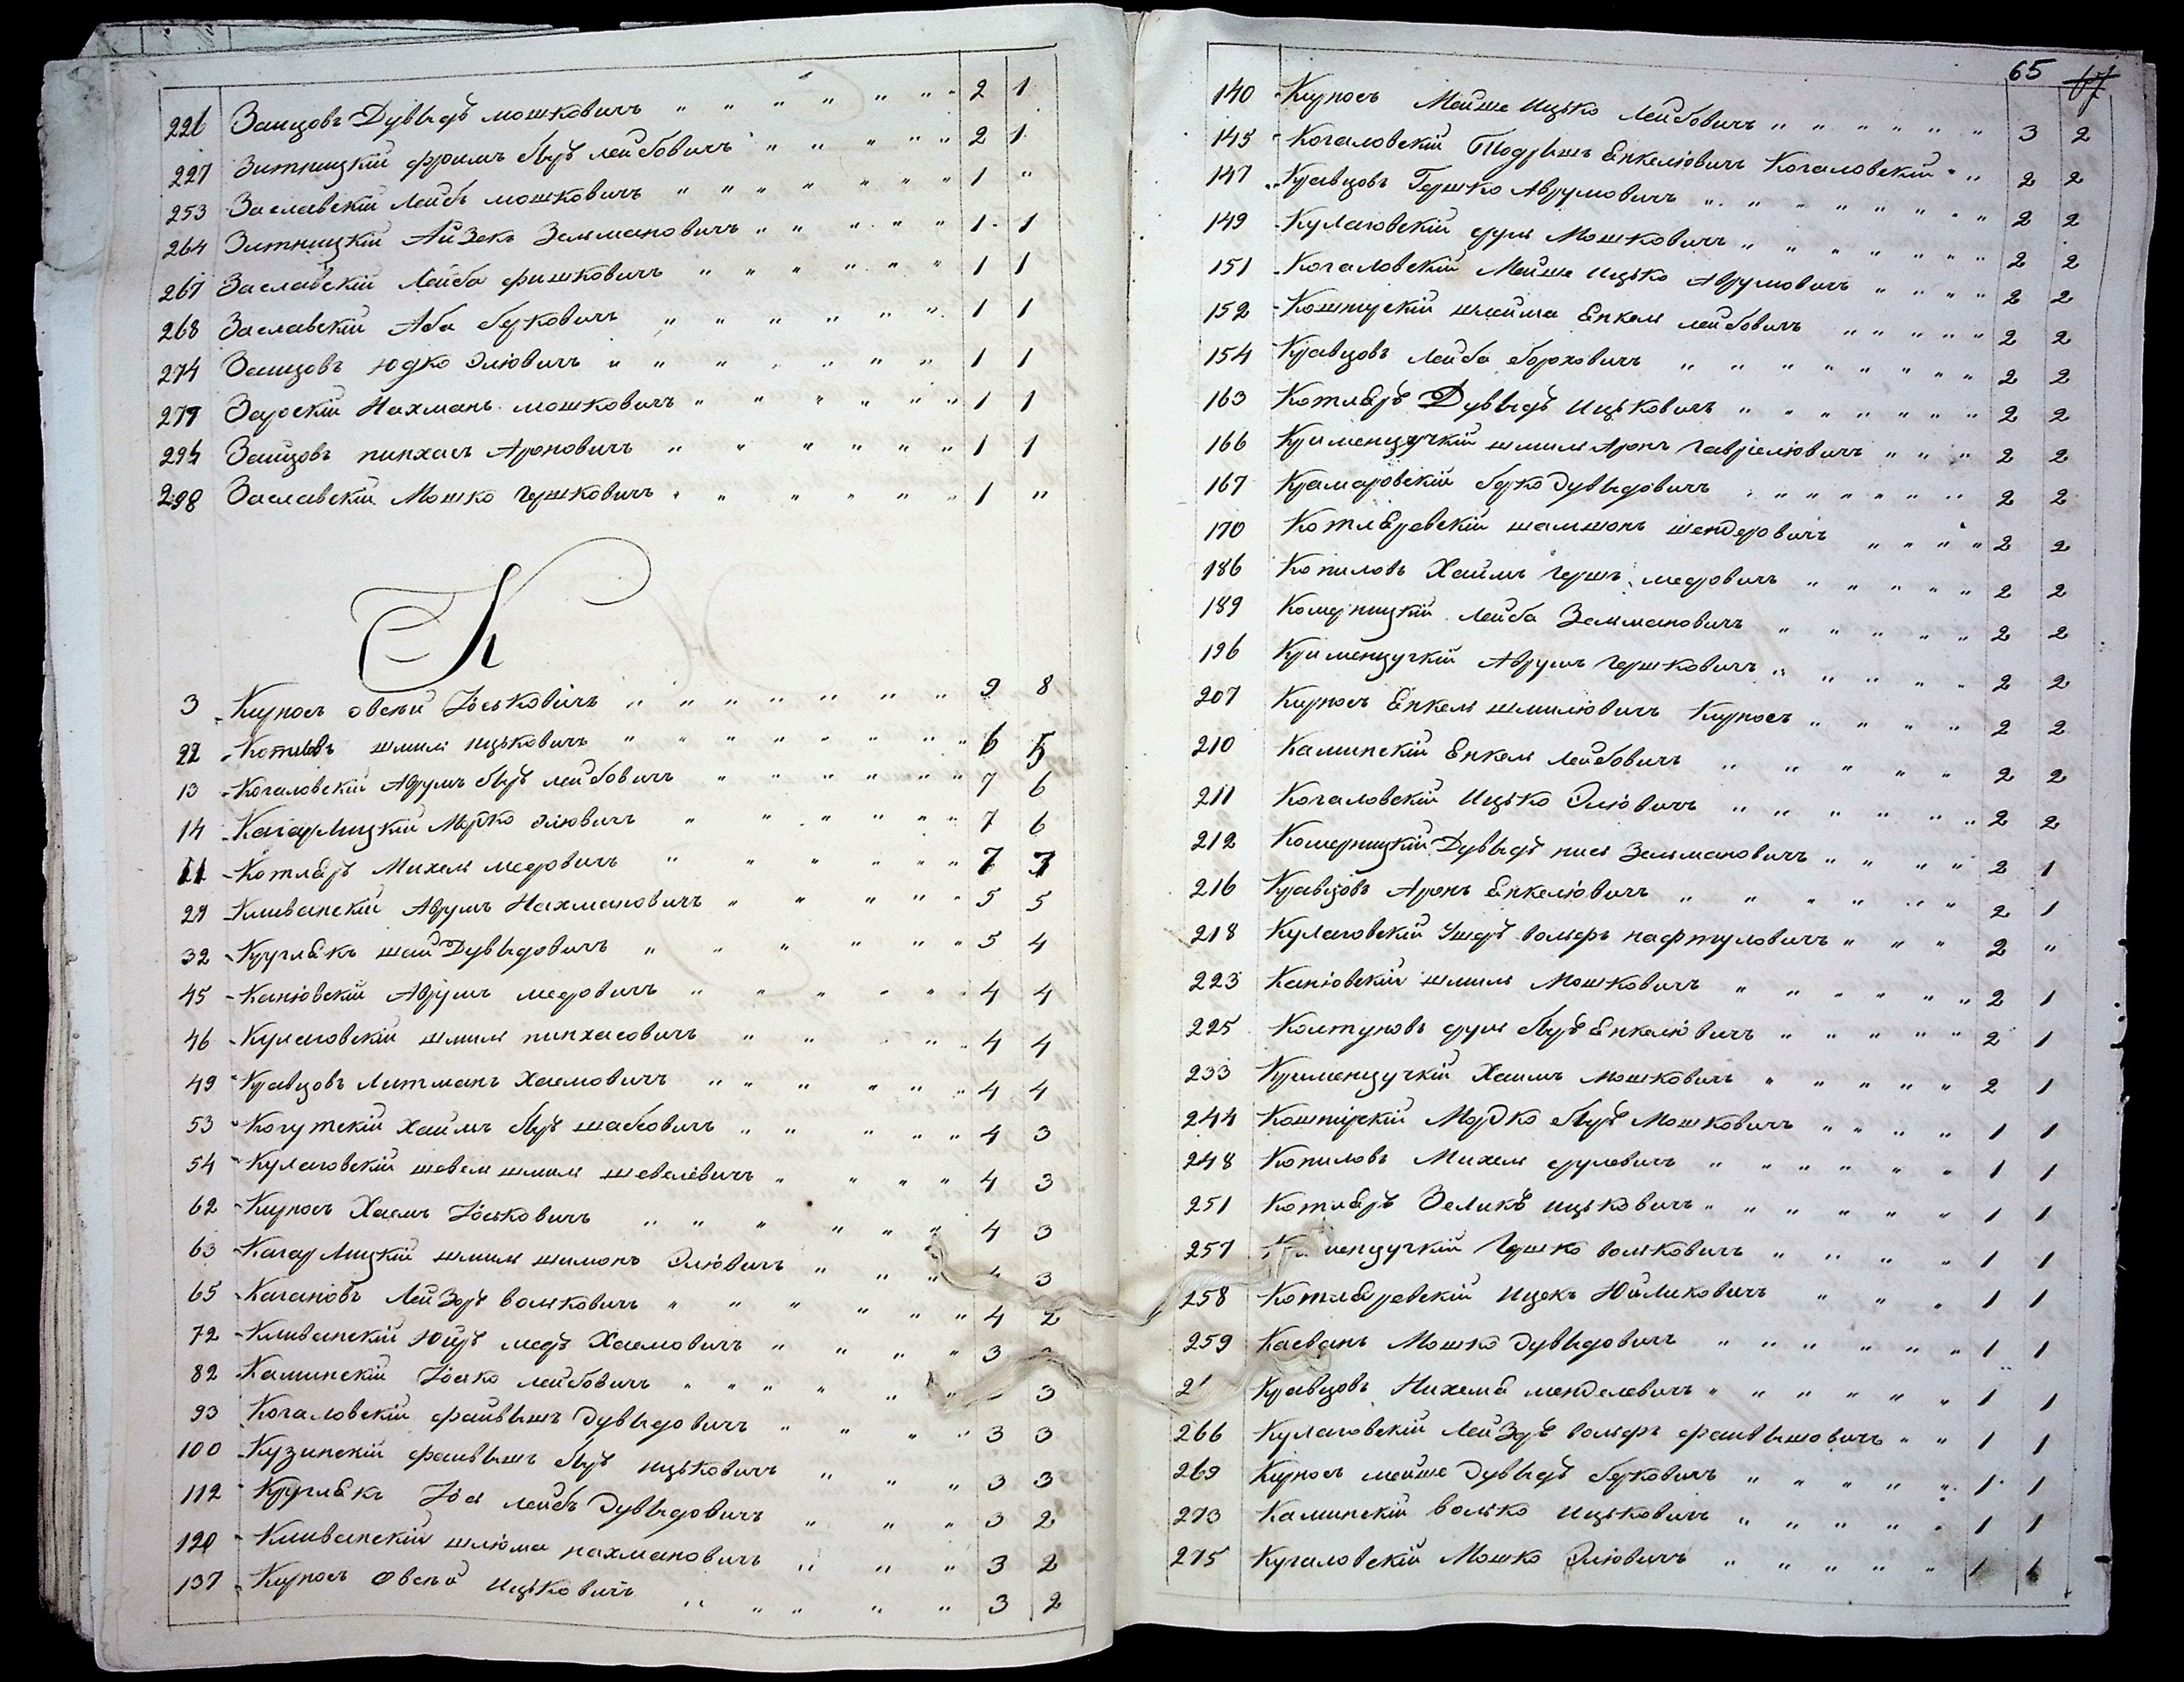 226 Заицовъ Дувыдъ мошковичъ " " " " " " " 2 1
227 Житницкій фроимъ беръ лейбовичъ " " " " " 2 1
253 Заславскій Лейбъ мошковичъ " " " " " " " 1 "
264 Житницкій Айзекъ Зельмановичъ " " " " " 1 1
267 Заславскій Лейба фишковичъ " " " " " " 1 1
268 Заславскій Аба берковичъ " " " " " " 1 1
274 Заицовъ Юдко Элювичъ " " " " " " " 1 1
279 Зарскій Нахманъ мошковичъ " " " " " " 1 1
Заицовъ пинхасъ Ароновичъ " " " " " " 1 1
298 Заславскій Мошко гершковичъ " " " " " " 1 "
К
3 Кирносъ овсѣй Іоськовичъ " " " " " " " 9 8
22 шмиль ицьковичъ " " " " " " " " 6 5
13 Когаловскій Аврумъ беръ лейбовичъ " " " " " " 7 6
14 Кагарлицкій Мордко элювичъ " " " " " " 7 6
11 Котляръ Михель мееровичъ " " " " " " 7 7
29 Кливанскій Аврумъ Нахмановичъ " " " " " 5 5
32 Круглякъ шаи Дувыдовичъ " " " " " " 5 4
45 Канювскій Аврумъ мееровичъ " " " " " 4 4
46 Кулаговскій шмиль пинхасовичъ " " " " " 4 4
49 Кравцовъ Литманъ Хаемовичъ " " " " " " 4 4
53 Когутскій хаимъ беръ шаевовичъ " " " " " 4 3
54 Кулаговскій шевель шмиль шевелевичъ " " " " 4 3
62 Кирносъ Хаемъ Іоськовичъ " " " " " " 4 3
63 Кагарлицкій шмиль шимонъ Элювичъ " " " 4 3
65 Кагановъ Лейзоръ вольковичъ " " " " " " 4 2
72 Кливанскій Юйръ меръ Хаемовичъ " " " " 3
82 Каминскій Іосько лейбовичъ " " " " " " 3
93 Когаловскій файвышъ Дувыдовичъ " " " " 3 3
100 Кузинскій файвышъ беръ ицьковичъ " " " 3 3
112 Круглякъ Іось лейбъ Дувыдовичъ " " " 3 2
120 Кливанскій шлюма нахмановичъ " " " 3 2
137 Кирносъ Овсѣй Ицьковичъ " " " " " 3 2
65
140 Кирносъ Мойше Ицько Лейбовичъ " " " " " " 3 2
145 Когаловскій Тодрышъ Енкелювичъ Когаловскій " " 2 2
147 Кравцовъ Гершко Аврумовичъ " " " " " " " " 2 2
149 Кулаговскій сруль Мошковичъ " " " " " " " 2 2
151 Когаловскій Мойше Ицько Аврумовичъ " " " " 2 2
152 шлойма Енкель лейбовичъ " " " " " 2 2
154 Кравцовъ Лейба борховичъ " " " " " " " " 2 2
163 Котляръ Дувыдъ Ицьковичъ " " " " " " " 2 2
166 Крименчучкій шмиль Аронъ гавріелювичъ " " " 2 2
167 Крамаровскій берко Дувыдовичъ " " " " " " " 2 2
170 Котляревскій шамшонъ шендеровичъ " " " " 2 2
186 Копиловъ Хаимъ гершъ меоровичъ " " " " " 2 2
189 Комерницкій Лейба Зельмановичъ " " " " " 2 2
196 Крименчучкій Аврумъ гершковичъ " " " " " 2 2
207 Кирносъ Енкель шмилювичъ Кирносъ " " " " 2 2
210 Каминскій Енкель Лейбовичъ " " " " " 2 2
211 Когаловскій Ицько Элювичъ " " " " " " " 2 2
212 Комерницкій Дувыдъ нисъ Зельмановичъ " " " " 2 1
216 Кравцовъ Аронъ Енкелювичъ " " " " " " 2 1
218 Кулаговскій Ушеръ вольфъ нафтуловичъ " " " 2 "
223 Канювскій шмиль Мошковичъ " " " " " " 2 1
225 Колтуновъ сруль беръ Енкелювичъ " " " " " 2 1
233 Крименчучкій Хаимъ мошковичъ " " " " " 2 1
244 Кошпірскій Мордко беръ Мошковичъ " " " " 1 1
248 Копиловъ Михель срулевичъ " " " " " " 1 1
251 Котляръ Зеликъ ицьковичъ " " " " " " 1 1
257 менчучкій Гершко вольковичъ " " " " 1 1
258 Котляревскій Ицекъ Юйликовичъ " " " 1 1
259 Каеванъ Мошко Дувыдовичъ " " " " " " " 1 1
Кравцовъ Нихемя менделевичъ " " " " " " 1 1
266 Кулаговскій Лейзоръ вольфъ файвышовичъ " " 1 1
269 Кирносъ мойше Дувыдъ берковичъ " " " " " 1 1
273 Каминскій волько Ицьковичъ " " " " " 1 1
275 Кугаловскій Мошко Элювичъ " " " " " 1 1